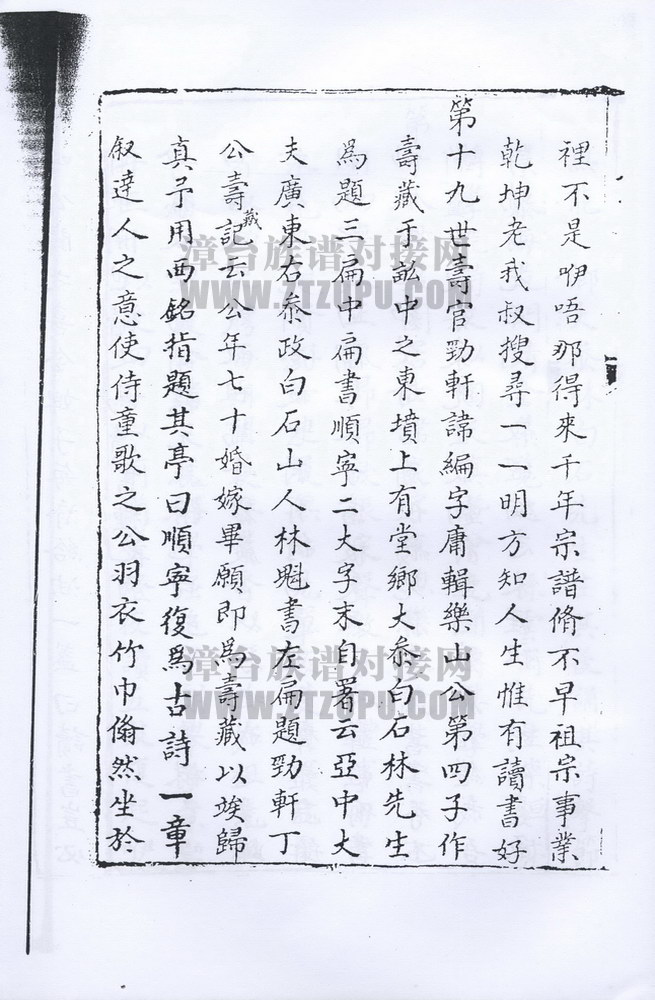 裡不是咿唔那得來千年宗譜脩不早祖宗事業
乾坤老我叔搜尋一一明方知人生惟有讀書好
第十九世壽官勁軒諱編字庸輯樂山公第四子作
壽藏于畝中之東墳上有堂鄉大叅白石林先生
為題三扁中扁書順寧二大字末自署云亞中大
夫廣東右叅政白石山人林魁書左扁題勁軒丁
公壽藏記云公年七十婚嫁畢願即為壽藏以竢歸
真予用西銘指題其亭曰順寧復為古詩一章
叙達人之意使侍童歌之公羽衣竹巾翛然坐於
漳台族谱对接网
www.ZTZUPU.COM
漳台族谱对接网
www.ZTZUPU.COM